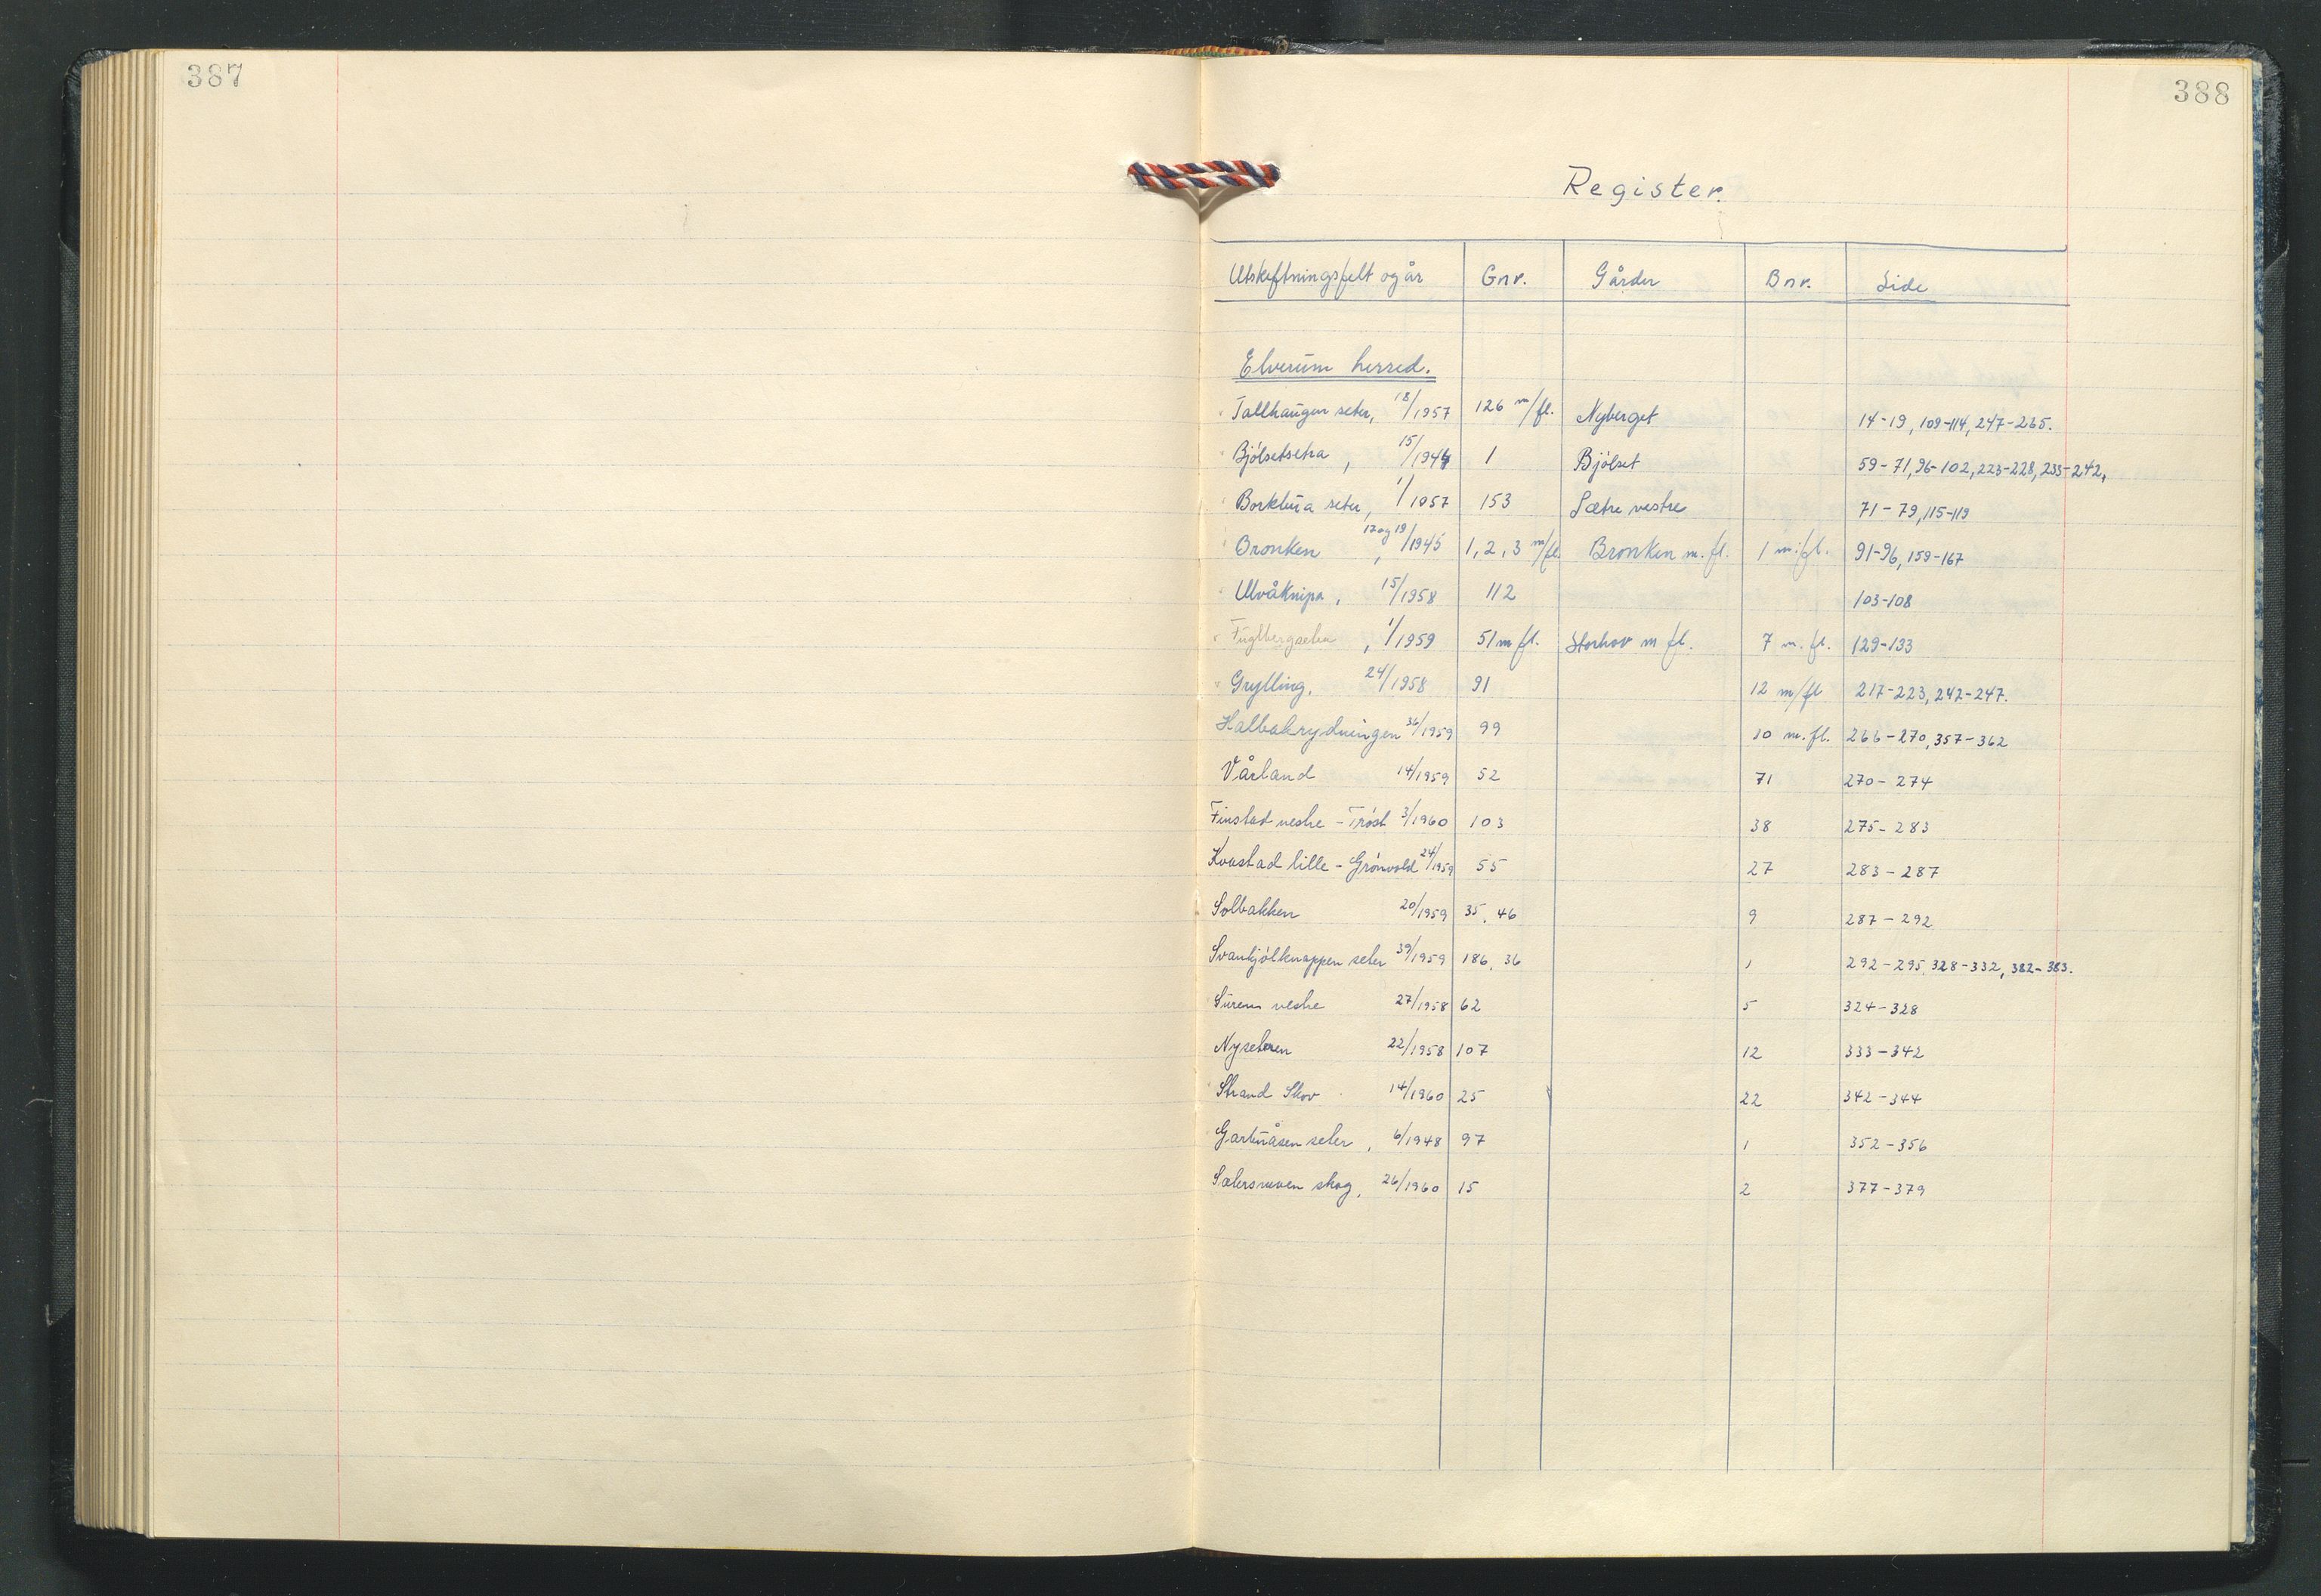 387
388
Register.
Utskiftningsfelt og år Gnr. Gårder Bnr. Side
Elverum herred.
Tallhaugen seter, 18/1957 126 m/fl. Nyberget 14-19, 109-114, 247-265.
Bjølsetsetra, 15/1944 1 Bjølset 59-71, 96-102, 223-228, 233-242,
Borkbua seter, 1/1957 153 Sætre vestre 71-79, 115-119
Bronken, 17 og 19/1945 1, 2, 3 m/fl. Bronken m. fl. 1 m. fl. 91-96, 159-167
Ulvåknipa, 15/1958 112 103-108
Fuglbergsetra, 1/1959 51 m fl. Storhov m fl. 7 m. fl. 129-133
Grylling, 24/1958 91 12 m/fl 217-223, 242-247.
Halbakrydningen 36/1959 99 10 m. fl. 266-270, 357-362
Vårland 14/1959 52 71 270-274
Finstad vestre - Trøst 3/1960 103 38 275-283
Kvastad lille - Grønvold 24/1959 55 27 283-287
Solbakken 20/1959 35, 46 9 287-292
Svankjølknappen seter 39/1959 186, 36 1 292-295, 328-332, 382-383.
Surens vestre 27/1958 62 5 324-328
Nyseteren 22/1958 107 12 333-342
Strand Skov 14/1960 25 22 342-344
Gartnåsen seter, 6/1948 97 1 352-356
skog, 26/1960 15 2 377-379